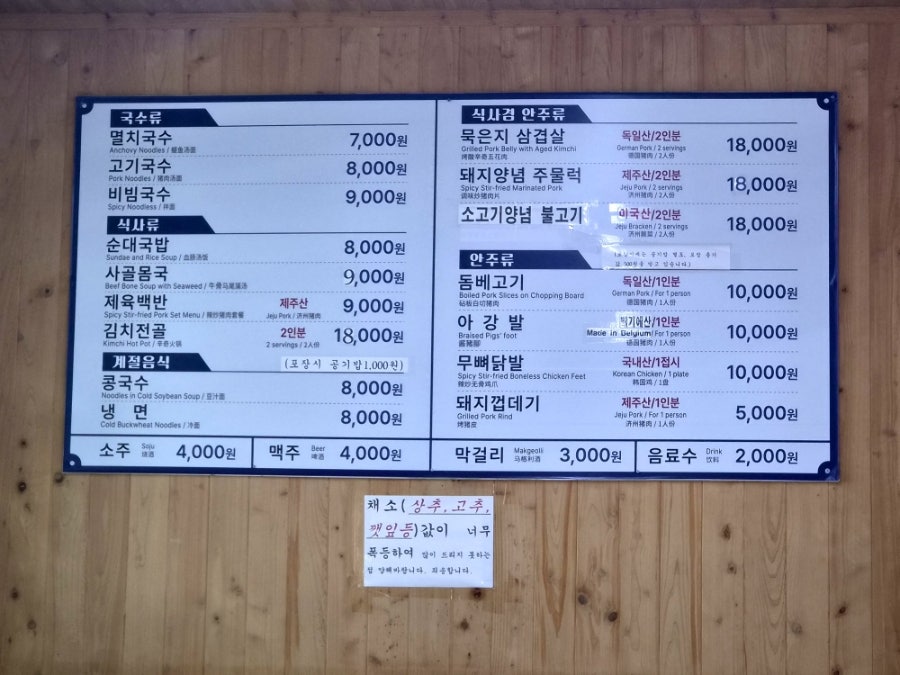 국수류
멸치국수 7,000원
Anchovy Noodles / 鳀鱼汤面
고기국수 8,000원
Pork Noodles / 猪肉汤面
비빔국수 9,000원
Spicy Noodless / 拌面
식사류
순대국밥 8,000원
Sundae and Rice Soup / 血肠汤饭
사골몸국 9,000원
Beef Bone Soup with Seaweed / 牛骨马尾藻汤
제육백반 제주산 9,000원
Spicy Stir-fried Pork Set Menu / 辣炒猪肉套餐 Jeju Pork / 济州猪肉
김치전골 2인분 18,000원
Kimchi Hot Pot / 辛奇火锅 2 servings / 2人份
계절음식 (포장시 공기밥1,000원)
콩국수 8,000원
Noodles in Cold Soybean Soup / 豆汁面
냉 면 8,000원
Cold Buckwheat Noodles / 冷面
소주 Soju 烧酒 4,000원
맥주 Beer 啤酒 4,000원
식사겸 안주류
묵은지 삼겹살 독일산/2인분 18,000원
Grilled Pork Belly with Aged Kimchi German Pork / 2 servings
烤酸辛奇五花肉 德国猪肉 / 2人份
돼지양념 주물럭 제주산/2인분 18,000원
Spicy Stir-fried Marinated Pork Jeju Pork / 2 servings
调味炒猪肉片 济州猪肉 / 2人份
소고기양념 불고기 미국산/2인분 18,000원
Jeju Bracken / 2 servings
济州蕨菜 / 2人份
안주류
돔베고기 독일산/1인분 10,000원
Boiled Pork Slices on Chopping Board German Pork / For 1 person
砧板白切猪肉 德国猪肉 / 1人份
아 강 발 벨기에산/1인분 10,000원
Braised Pigs' foot Made in Belgium/ For 1 person
酱猪脚 德国猪肉 / 1人份
무뼈닭발 국내산/1접시 10,000원
Spicy Stir-fried Boneless Chicken Feet Korean Chicken / 1 plate
辣炒无骨鸡爪 韩国鸡 / 1盘
돼지껍데기 제주산/1인분 5,000원
Grilled Pork Rind Jeju Pork / For 1 person
烤猪皮 济州猪肉 / 1人份
막걸리 Makgeolli 马格利酒 3,000원
음료수 Drink 饮料 2,000원
채소(상추, 고추,
깻잎등)값이 너무
폭등하여 많이 드리지 못하는
점 양해바랍니다. 죄송합니다.